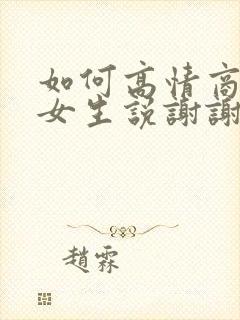 如何高情商
女生説謝謝
趙霖